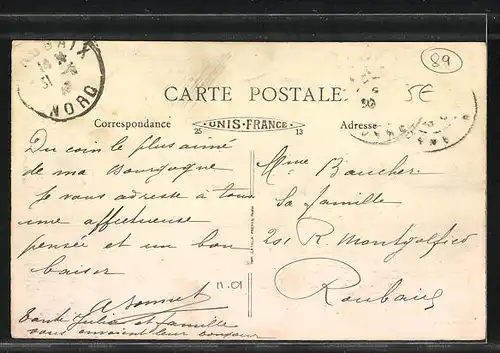 ROUBAIX
NORD
89
5E
CARTE POSTALE
Correspondance
25 UNIS-FRANCE 13
Adresse
Du coin le plus aimé
de ma Bourgogne
Je vous adresse à tous
une affectueuse
pensée et un bon
baiser
n.01
A Bonnet
Tante Julia et famille
vous envoient leur bonjour
Mme Boucher
Sa famille
201 R. Montgolfier
Roubaix